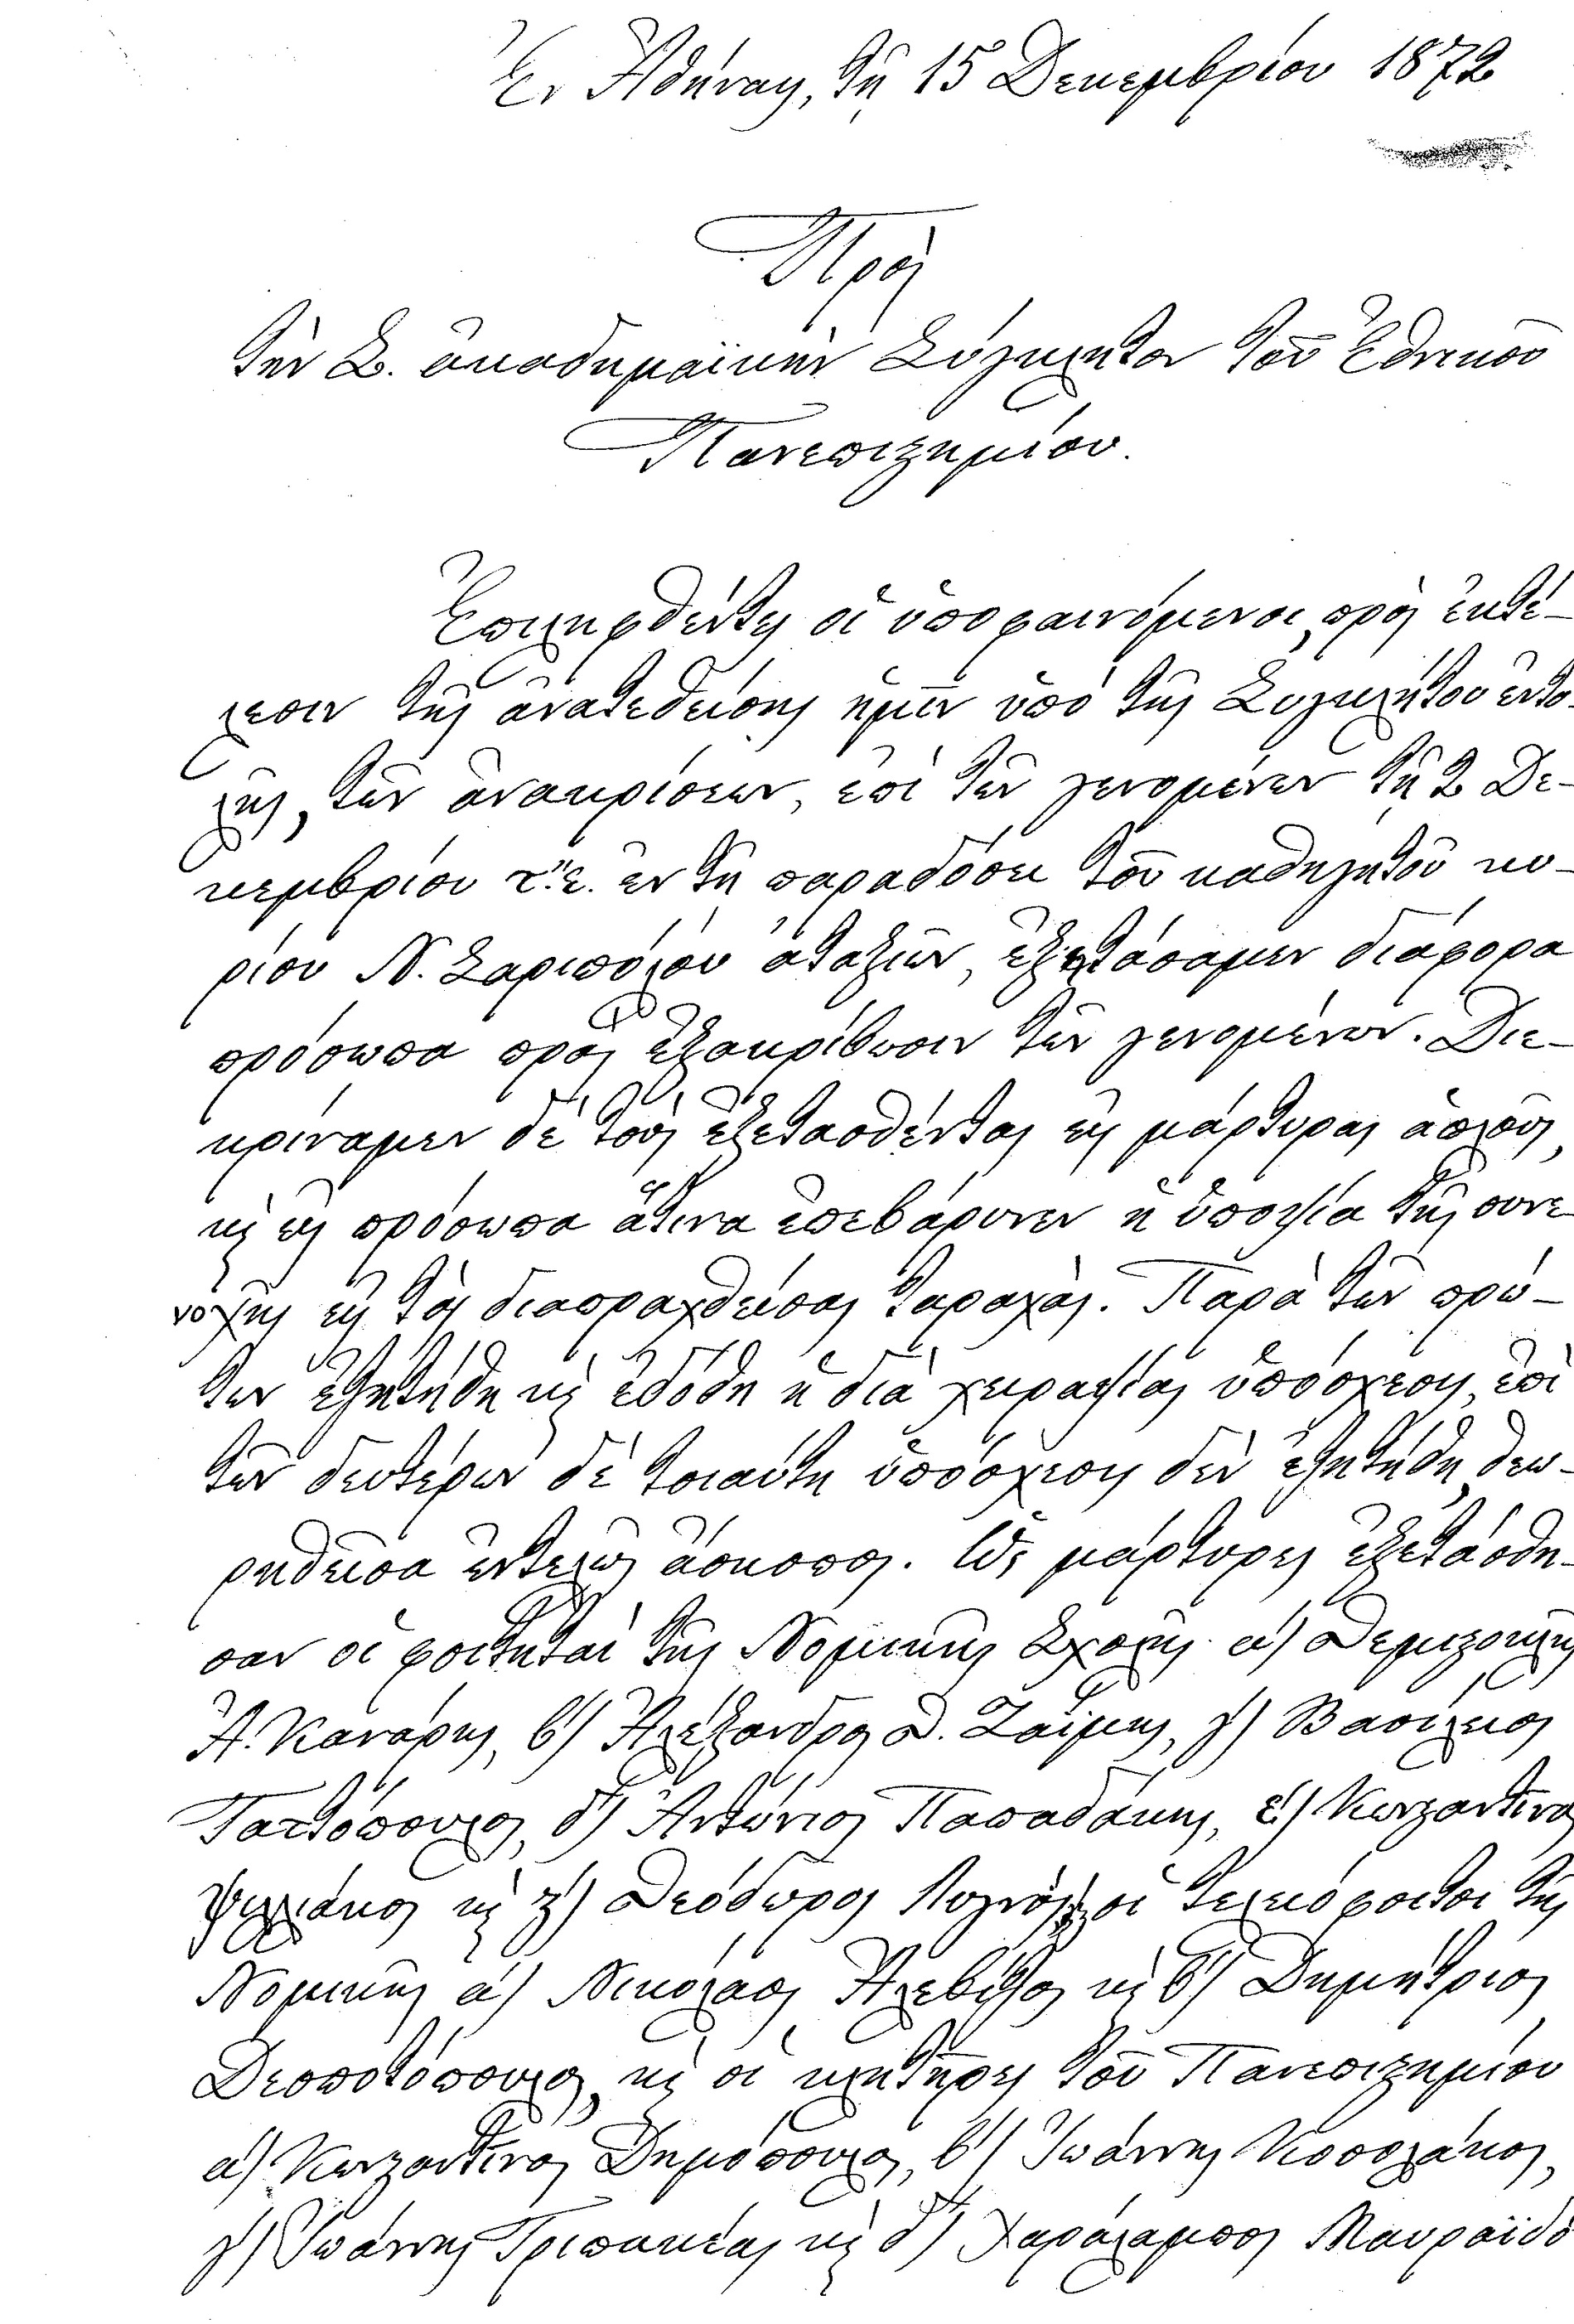 Ἐν Ἀθήναις, τῇ 15 Δεκεμβρίου 1872
Πρὸς
τὴν Σ. ἀκαδημαϊκὴν Σύγκλητον τοῦ Ἐθνικοῦ
Πανεπιστημίου.
Ἐπιληφθέντες οἱ ὑποφαινόμενοι, πρὸς ἐκτέ-
λεσιν τῆς ἀνατεθείσης ἡμῖν ὑπὸ τῆς Συγκλήτου ἐντο-
λῆς, τῶν ἀνακρίσεων, ἐπὶ τῶν γενομένων τῇ 2 Δε-
κεμβρίου τ.ἔ. ἐν τῇ παραδόσει τοῦ καθηγητοῦ κυ-
ρίου Ν. Σαριπόλου ἀταξιῶν, ἐξητάσαμεν διάφορα
πρόσωπα πρὸς ἐξακρίβωσιν τῶν γενομένων. Διε-
κρίναμεν δὲ τοὺς ἐξετασθέντας εἰς μάρτυρας ἁπλοῦς,
κ̀ εἰς πρόσωπα ἅτινα ἐπεβάρυνεν ἡ ὑποψία τῆς συνε-
νοχῆς εἰς τὰς διαπραχθείσας ταραχάς. Παρὰ τῶν πρώ-
των ἐζητήθη κ̀ ἐδόθη ἡ διὰ χειραψίας ὑπόσχεσις, ἐπὶ
τῶν δευτέρων δὲ τοιαύτη ὑπόσχεσις δὲν ἐζητήθη θεω-
ρηθεῖσα ἐντελῶς ἄσκοπος. Ὡς μάρτυρες ἐξετάσθη-
σαν οἱ φοιτηταὶ τῆς Νομικῆς Σχολῆς α) Θεμιστοκλῆς
Ἀ. Κανάρης, β) Ἀλέξανδρος Θ. Ζαΐμης, γ) Βασίλειος
δ) Ἀντώνιος Παπαδάκης, ε) Κωνσταντῖνος
κ̀ στ) Θεόδωρος οἱ τελειόφοιτοι τῆς
Νομικῆς α) Νικόλαος Ἀλεβίζος κ̀ β) Δημήτριος
Δεσποτόπουλος, κ̀ οἱ κλητῆρες τοῦ Πανεπιστημίου
α) Κωνσταντῖνος Δημόπουλος, β) Ἰωάννης
γ) Ἰωάννης Τριπακέας κ̀ δ) Χαράλαμπος